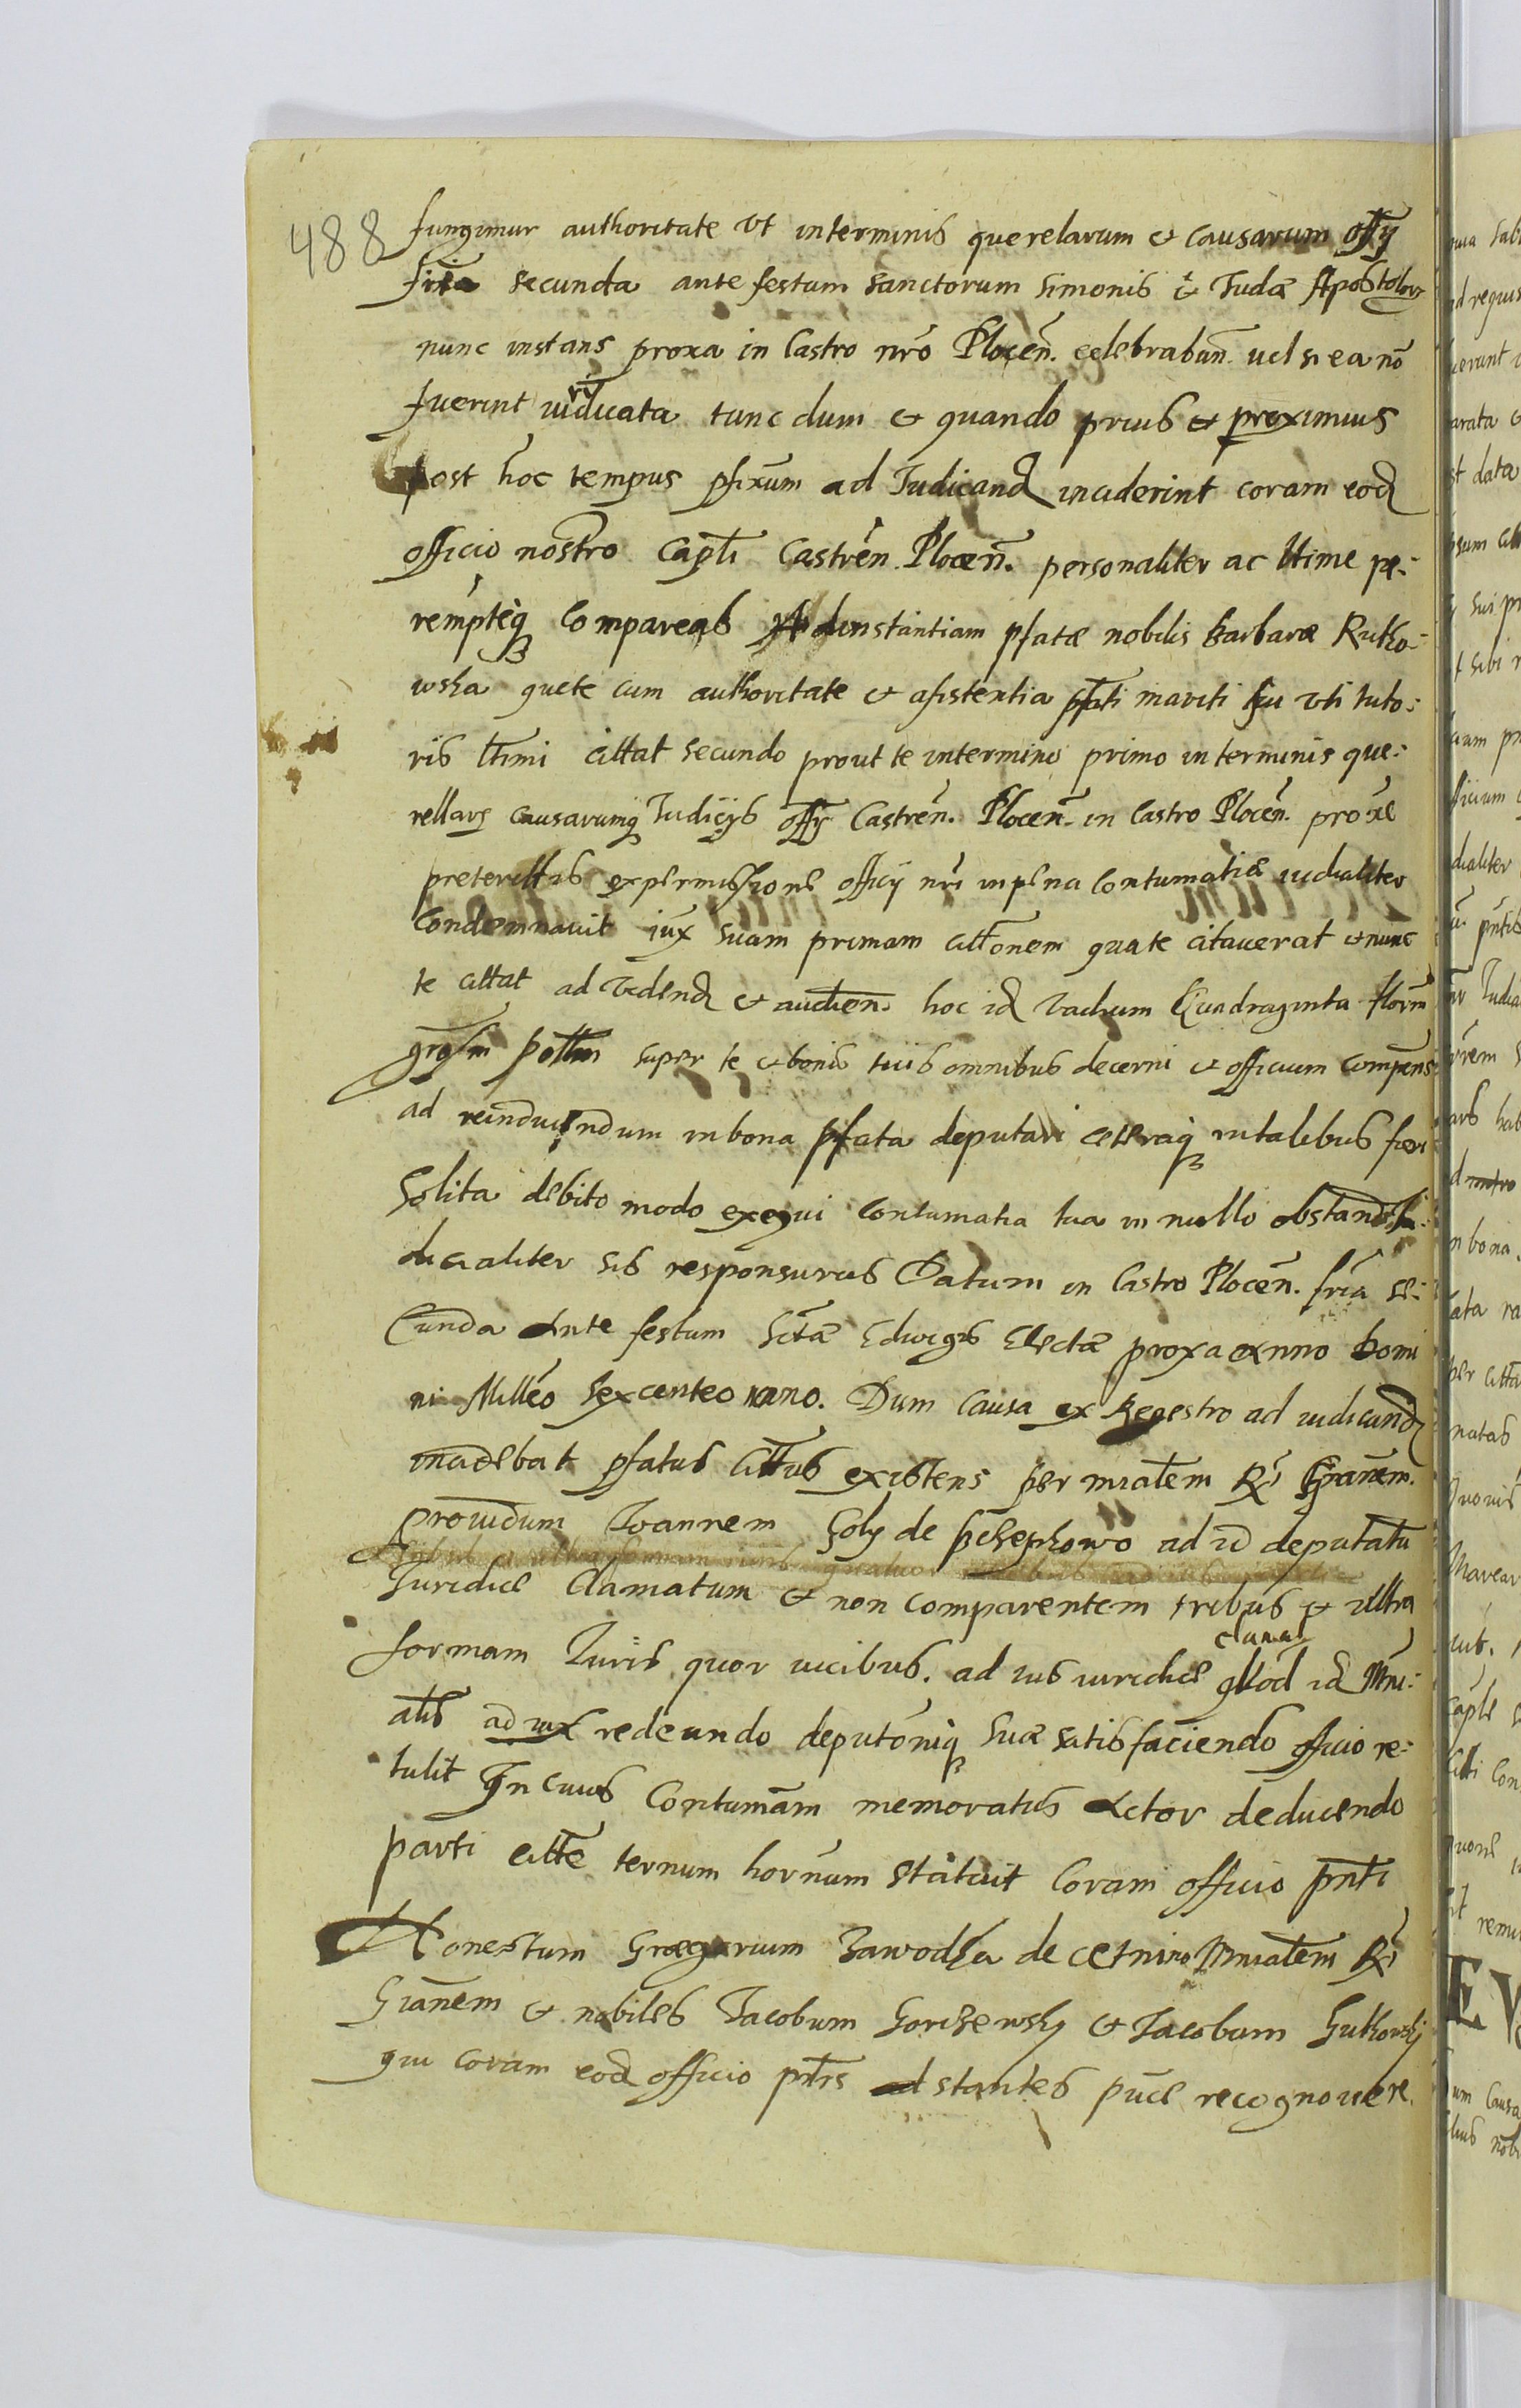 488
fungimur authoritate vt in terminis querelarum et causarum offy
feria secunda ante festum sanctorum Simonis et Judæ Apostolor
nunc instans proxa in Castro nro Plocen. celebraban. uel si ea nō
fuerint iudicata tunc dum et quando prius et proximius
post hoc tempus pfixum ad Judicand inciderint coram eod
officio nostro Capli Castren Plocen. personaliter ac ltime pe:
rempteq Compareas Ad instantiam pfatæ nobilis Barbaræ Rutko:
wska que te cum authoritate et assistentia pfati mariti sui vti tuto:
ris ltimi cittat secundo prout te in termino primo in terminis que:
rellarq causarumq Judicijs offy Castren. Plocen. in Castro Plocen. proxe
preteritis ex permissione officij nri in pena contumatiæ iudialiter
Condemnauit iux suam primam cittonem qua te citauerat et nunc
te cittat ad vidend et audien. hoc id vadium Quadraginta florm
super te et bonis tuis omnibus decerni et officium compens
ad reinducendum in bona pfata deputari ceteraq in talibus fieri
Solita debito modo exequi Contumatia tua in nullo obstand Ju:
dicialiter sis responsurus Datum in Castro Plocen. fria se:
cunda Ante festum Sctæ Eduigis Electæ proxa anno Domi
ni Milleo Sexcenteo nono. Dum Causa ex Regestro ad iudicand
incidebat pfatus Cittus existens per miatem Rx Gnanem.
prouidum Joannem Soly de ad id deputatu
Juridice Clamatum et non comparentem tribus et ultra
formam Juris quor vicibus. ad ius iuridice clamat quod id Mni:
alis ad iux redeundo deputoniq suæ satisfaciendo officio re:
tulit In cuius Contumam memoratus Actor deducendo
parti citte ternum hornum statuit Coram officio pnti
Honestum Gregorium Zawodka de Cetnino Mniatem Rx
Gnanem et nobiles Jacobum Gorzewsky et Jacobum Gutkowsky
qui coram eod officio pntrs adstantes puce recognouere.